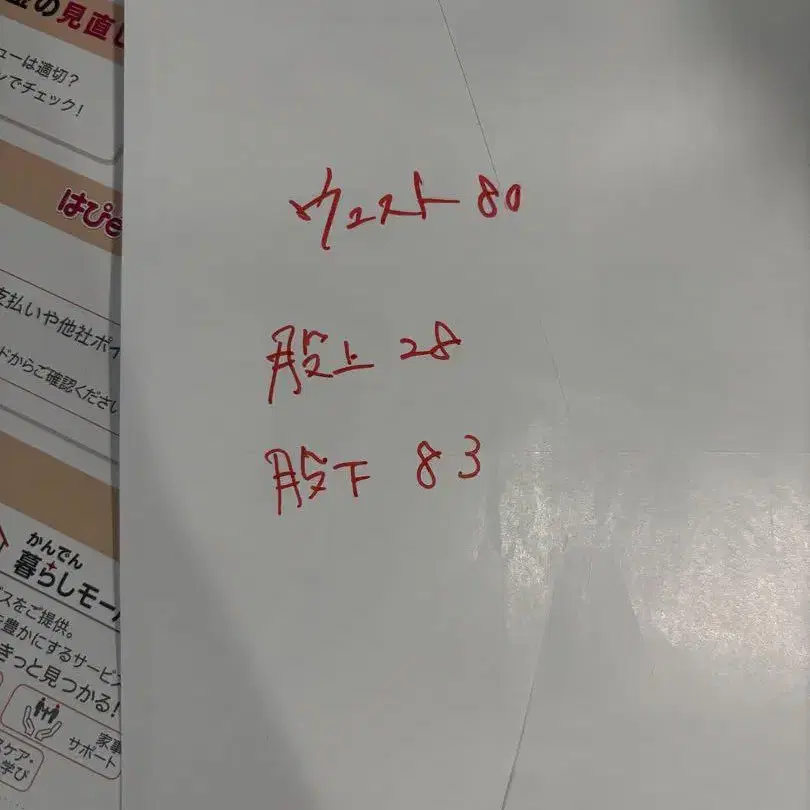 金の見直し
ューは適切?
ンでチェック!
はぴe
支払いや他社ポイ
ドからご確認ください
かんでん
暮らしモール
ビスをご提供。
を豊かにするサービス
きっと見つかる!
家事
サポート
スケア・
学び
ウェスト 80
股上 28
股下 83